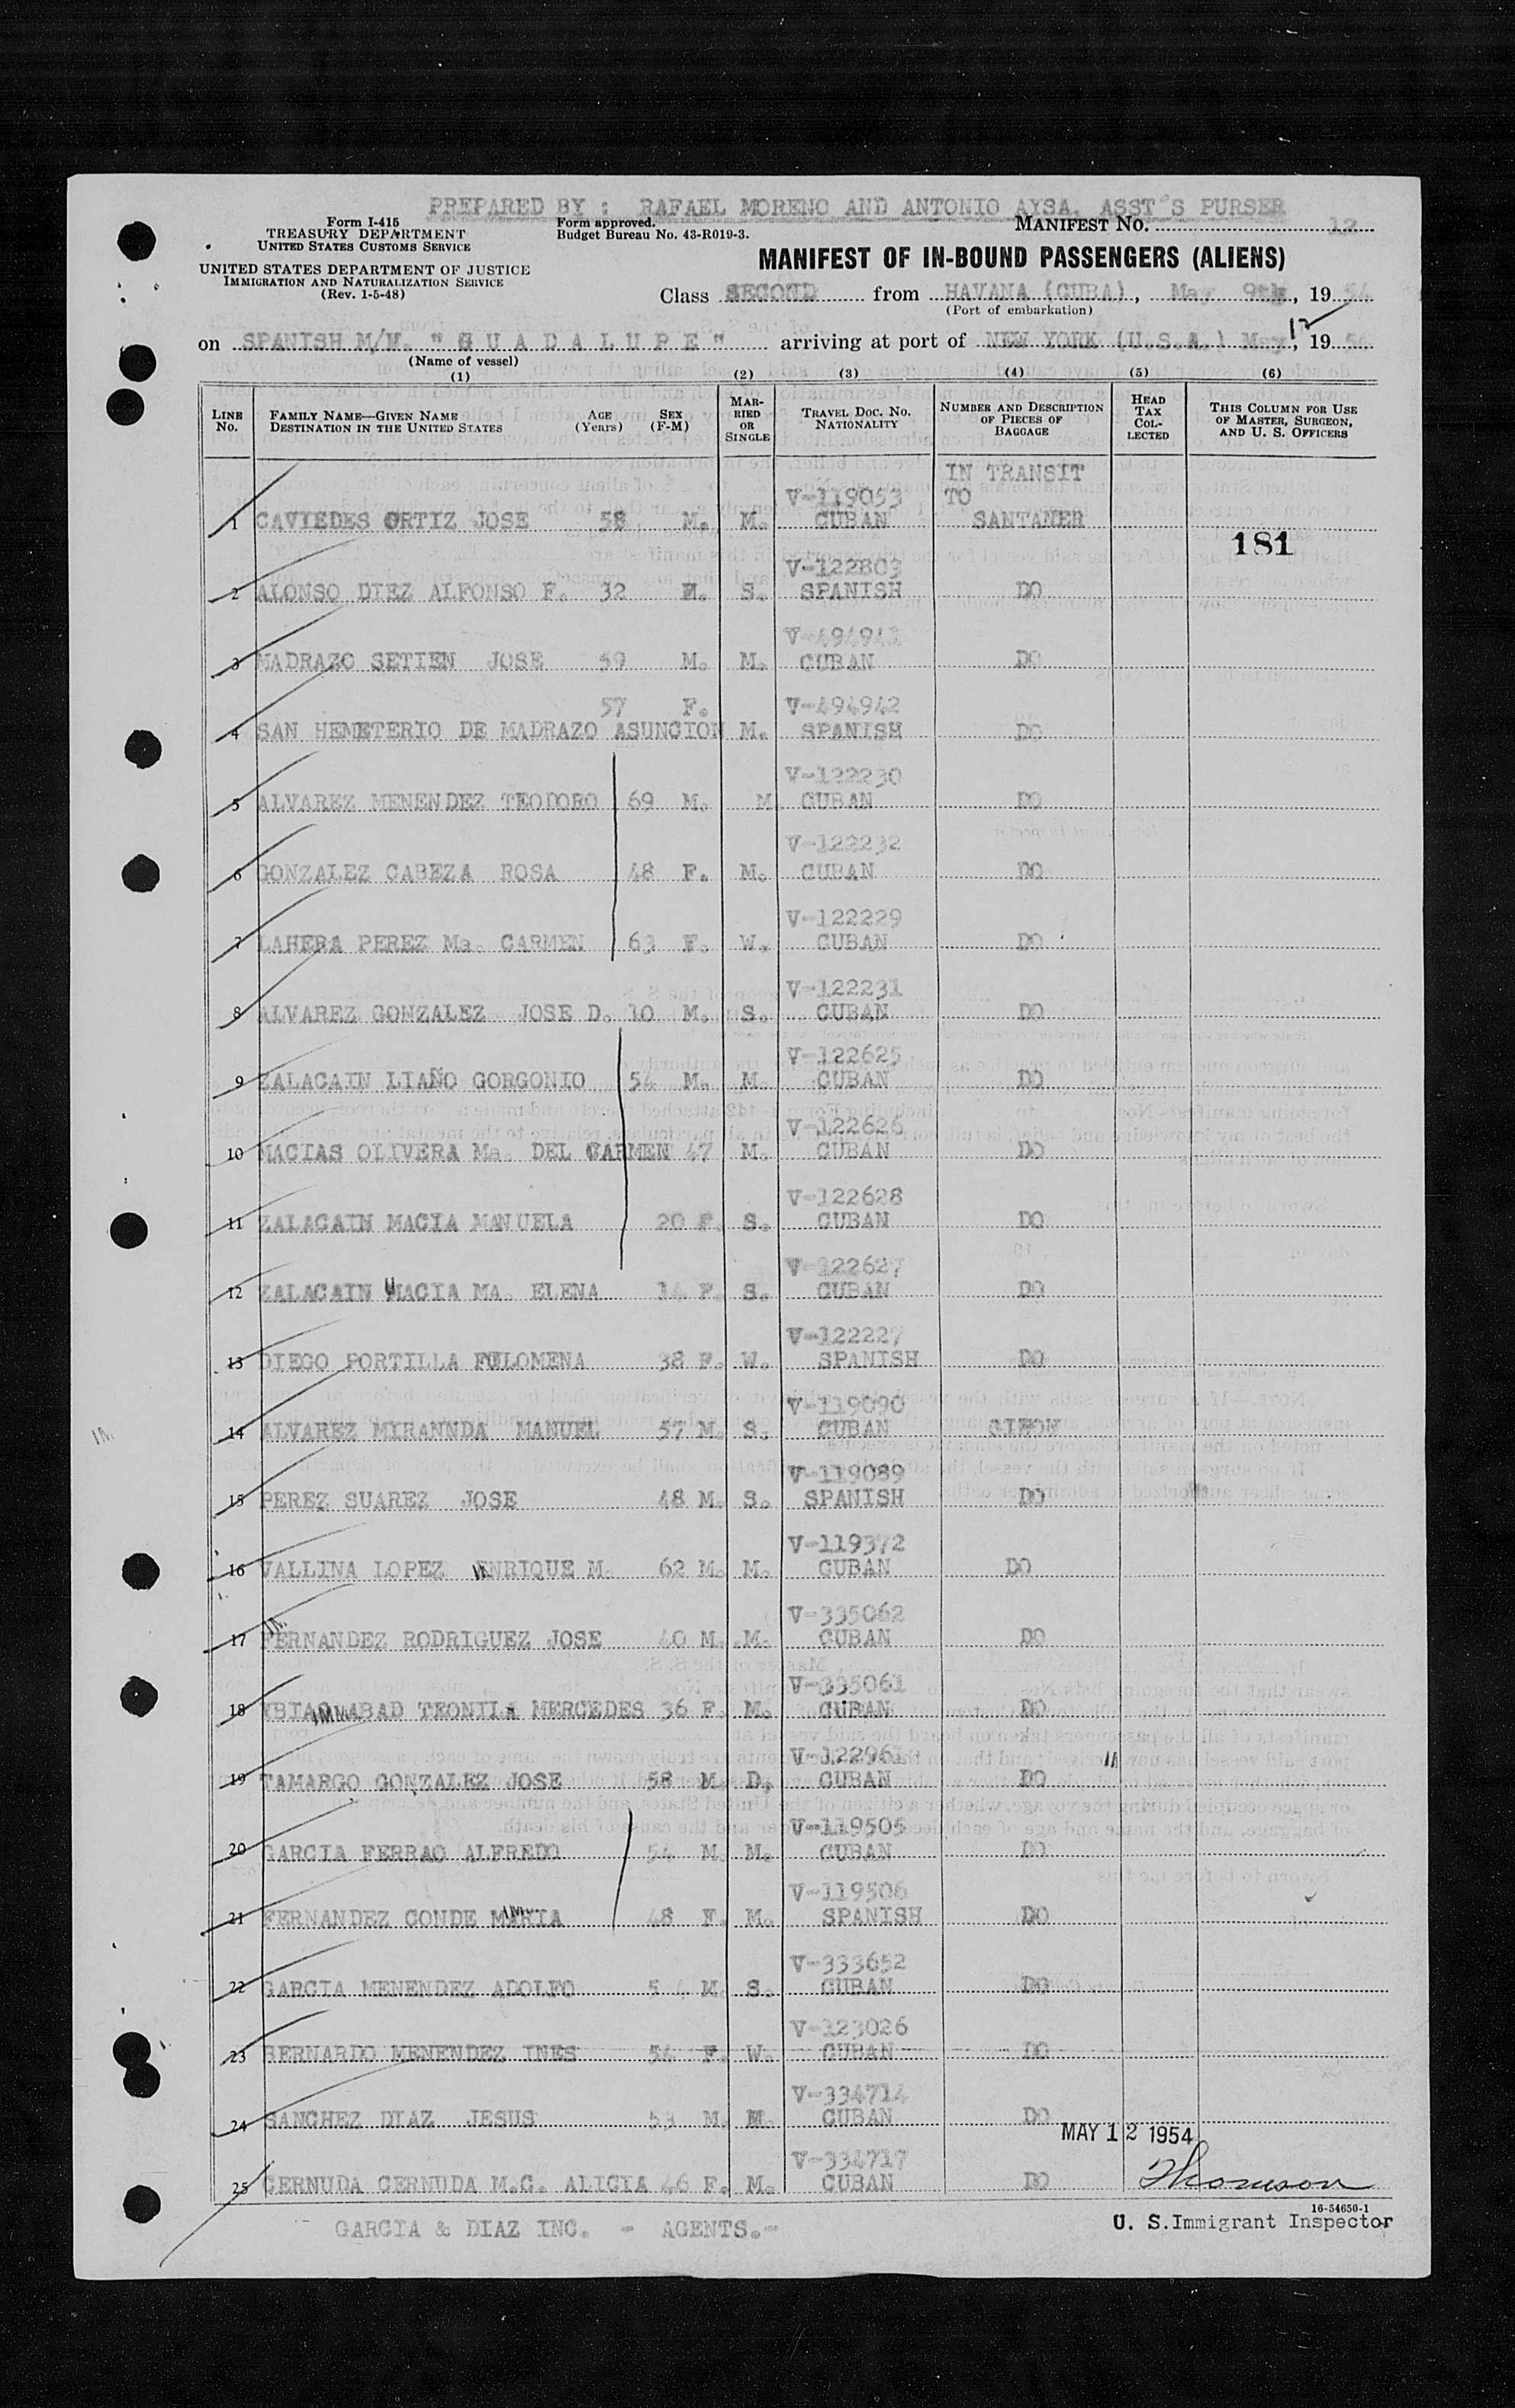 PREPARED BY : RAFAEL MORENO AND ANTONIO AYSA, ASST'S PURSER
Form I-415
TREASURY DEPARTMENT
UNITED STATES CUSTOMS SERVICE
UNITED STATES DEPARTMENT OF JUSTICE
IMMIGRATION AND NATURALIZATION SERVICE
(Rev. 1-5-48)
Form approved.
Budget Bureau No. 43-R019-3.
MANIFEST NO. 12
MANIFEST OF IN-BOUND PASSENGERS (ALIENS)
Class SECOND from HAVANA (CUBA), May 9th, 1954
(Port of embarkation)
on SPANISH M/V. "GUADALUPE" arriving at port of NEW YORK (U.S.A.) May 12, 1954
(Name of vessel)
(1) (2) (3) (4) (5) (6)
LINE No. FAMILY NAME—GIVEN NAME DESTINATION IN THE UNITED STATES AGE (Years) SEX (F-M) MARRIED OR SINGLE TRAVEL DOC. NO. NATIONALITY NUMBER AND DESCRIPTION OF PIECES OF BAGGAGE HEAD TAX COLLECTED THIS COLUMN FOR USE OF MASTER, SURGEON, AND U. S. OFFICERS
IN TRANSIT
V-119053 TO
1 CAVIEDES ORTIZ JOSE 58 M. M. CUBAN SANTANER
181
V-122803
2 ALONSO DIEZ ALFONSO F. 32 M. S. SPANISH DO
V-494941
3 MADRAZO SETIEN JOSE 59 M. M. CUBAN DO
57 F. V-494942
4 SAN HEMETERIO DE MADRAZO ASUNCION M. SPANISH DO
V-122230
5 ALVAREZ MENENDEZ TEODORO 69 M. M CUBAN DO
V-122232
6 GONZALEZ CABEZA ROSA 48 F. M. CUBAN DO
V-122229
7 LAHERA PEREZ Ma. CARMEN 63 F. W. CUBAN DO
V-122231
8 ALVAREZ GONZALEZ JOSE D. 10 M. S. CUBAN DO
V-122625
9 ZALACAIN LIAÑO GORGONIO 54 M. M. CUBAN DO
V-122626
10 MACIAS OLIVERA Ma. DEL CARMEN 47 M. CUBAN DO
V-122628
11 ZALACAIN MACIA MANUELA 20 F. S. CUBAN DO
V-122627
12 ZALACAIN MACIA MA. ELENA 14 F. S. CUBAN DO
V-122227
13 DIEGO PORTILLA FILOMENA 38 F. W. SPANISH DO
V-119090
14 ALVAREZ MIRANNDA MANUEL 57 M. S. CUBAN GIJON
V-119089
15 PEREZ SUAREZ JOSE 48 M. S. SPANISH DO
V-119372
16 VALLINA LOPEZ ENRIQUE M. 62 M. M. CUBAN DO
V-335062
17 FERNANDEZ RODRIGUEZ JOSE 40 M. M. CUBAN DO
V-335061
18 ABAD TEONILA MERCEDES 36 F. M. CUBAN DO
V-122961
19 TAMARGO GONZALEZ JOSE 58 M. D. CUBAN DO
V-119505
20 GARCIA FERRAO ALFREDO 54 M. M. CUBAN DO
V-119506
21 FERNANDEZ CONDE MARIA 48 F. M. SPANISH DO
V-333652
22 GARCIA MENENDEZ ADOLFO 54 M. S. CUBAN DO
V-123026
23 BERNARDO MENENDEZ INES 54 F. W. CUBAN DO
V-334714
24 SANCHEZ DIAZ JESUS 53 M. M. CUBAN DO
MAY 12 1954
V-334717
25 CERNUDA CERNUDA M.C. ALICIA 46 F. M. CUBAN DO
Thomson
16-54650-1
GARCIA & DIAZ INC. - AGENTS.-
U. S. Immigrant Inspector